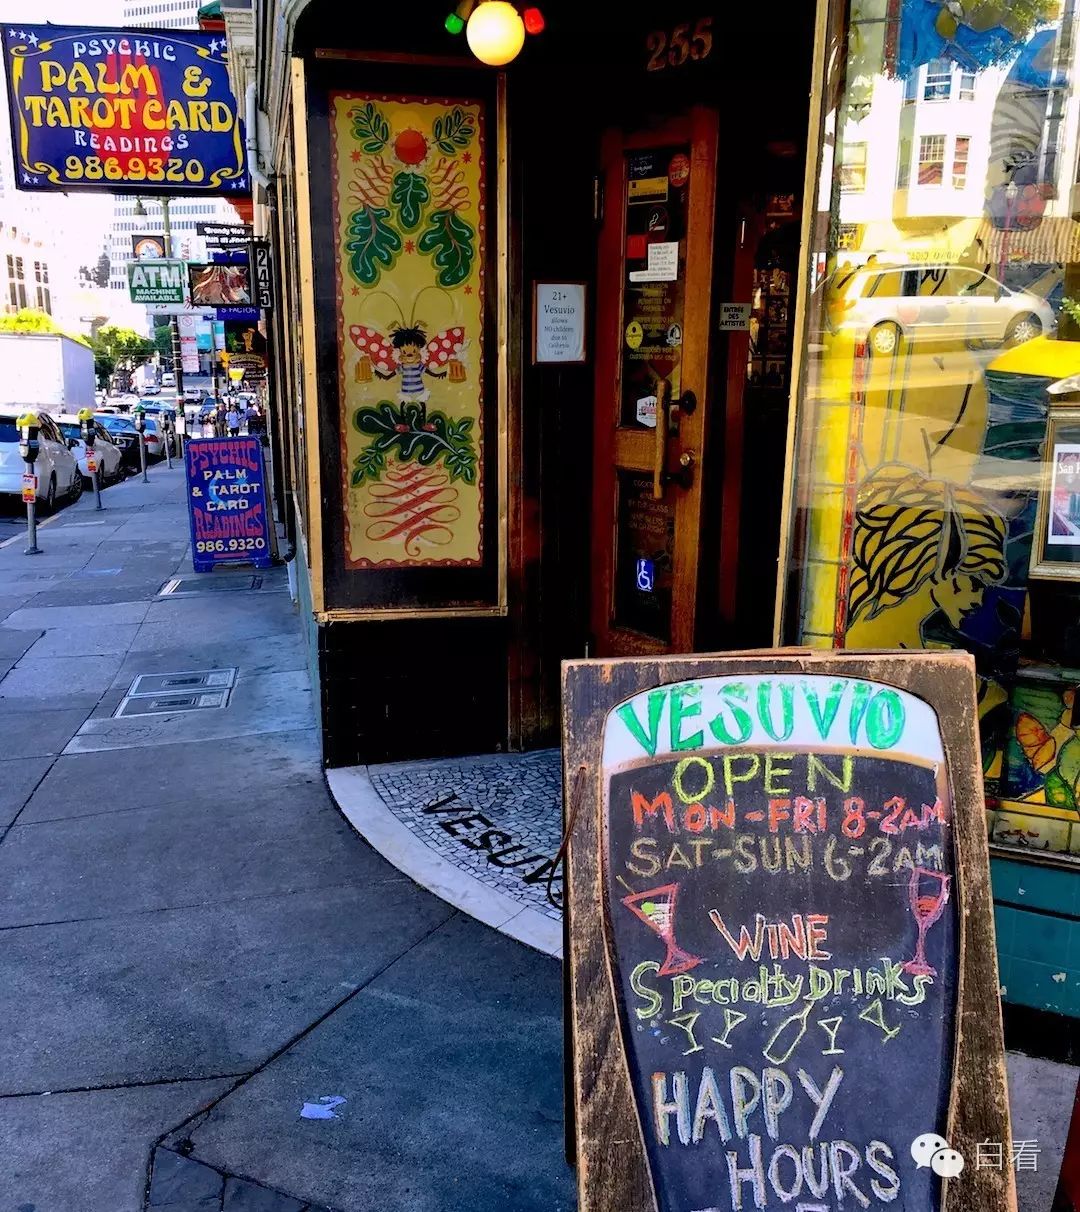 PSYCHIC
PALM &
TAROT CARD
READINGS
986.9320
ATM
MACHINE
AVAILABLE
245
PSYCHIC
PALM
& TAROT
CARD
READINGS
986.9320
255
21+
Vesuvio
allows
NO children
due to
California
Law
ENTRÉE
DES
ARTISTES
San F
VESUV
VESUVIO
OPEN
MON-FRI 8-2AM
SAT-SUN 6-2AM
WINE
Specialty Drinks
HAPPY
HOURS
白看